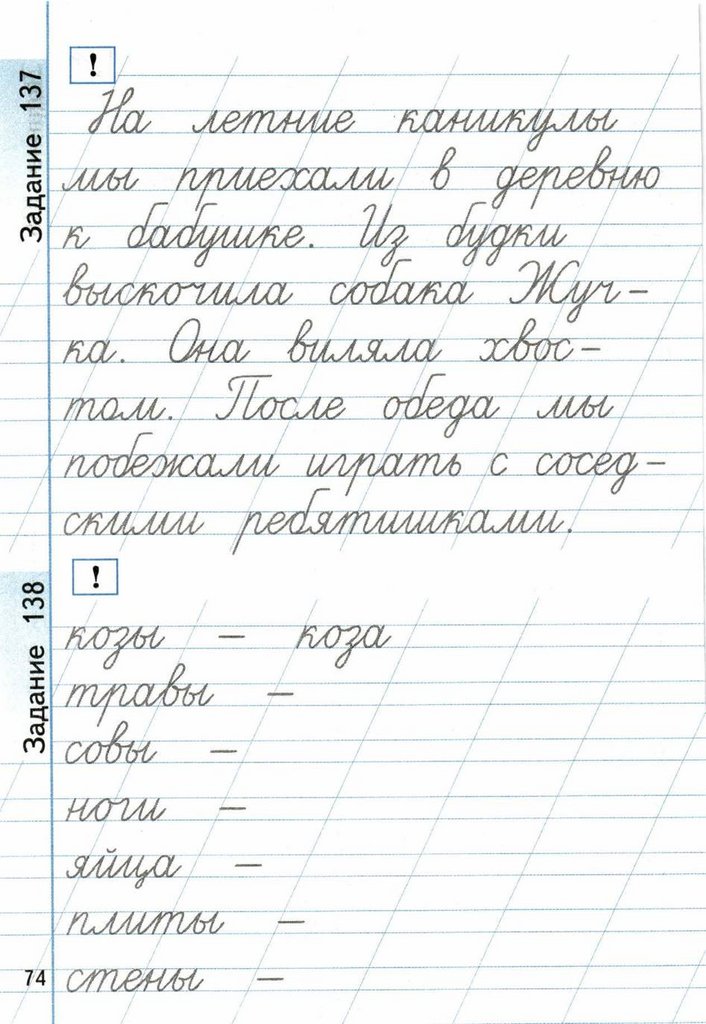 Задание 137
!
На летние каникулы
мы приехали в деревню
к бабушке. Из будки
выскочила собака Жуч-
ка. Она виляла хвос-
том. После обеда мы
побежали играть с сосед-
скими ребятишками.
Задание 138
!
козы – коза
травы –
совы –
ноги –
яйца –
плиты –
стены –
74